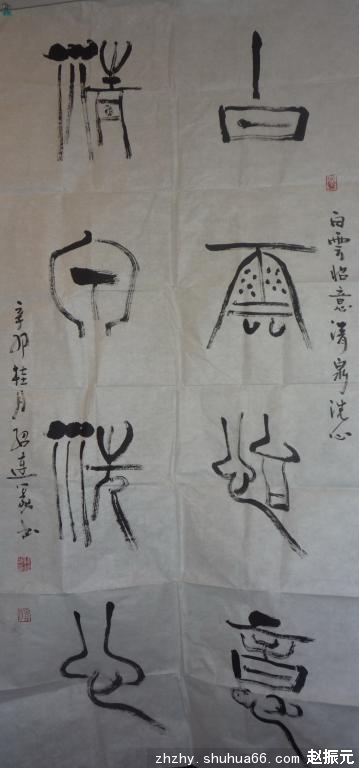 白雲怡意清泉洗心
白雲怡意
清泉洗心
辛卯桂月連義书
zhzhy.shuhua66.com 赵振元